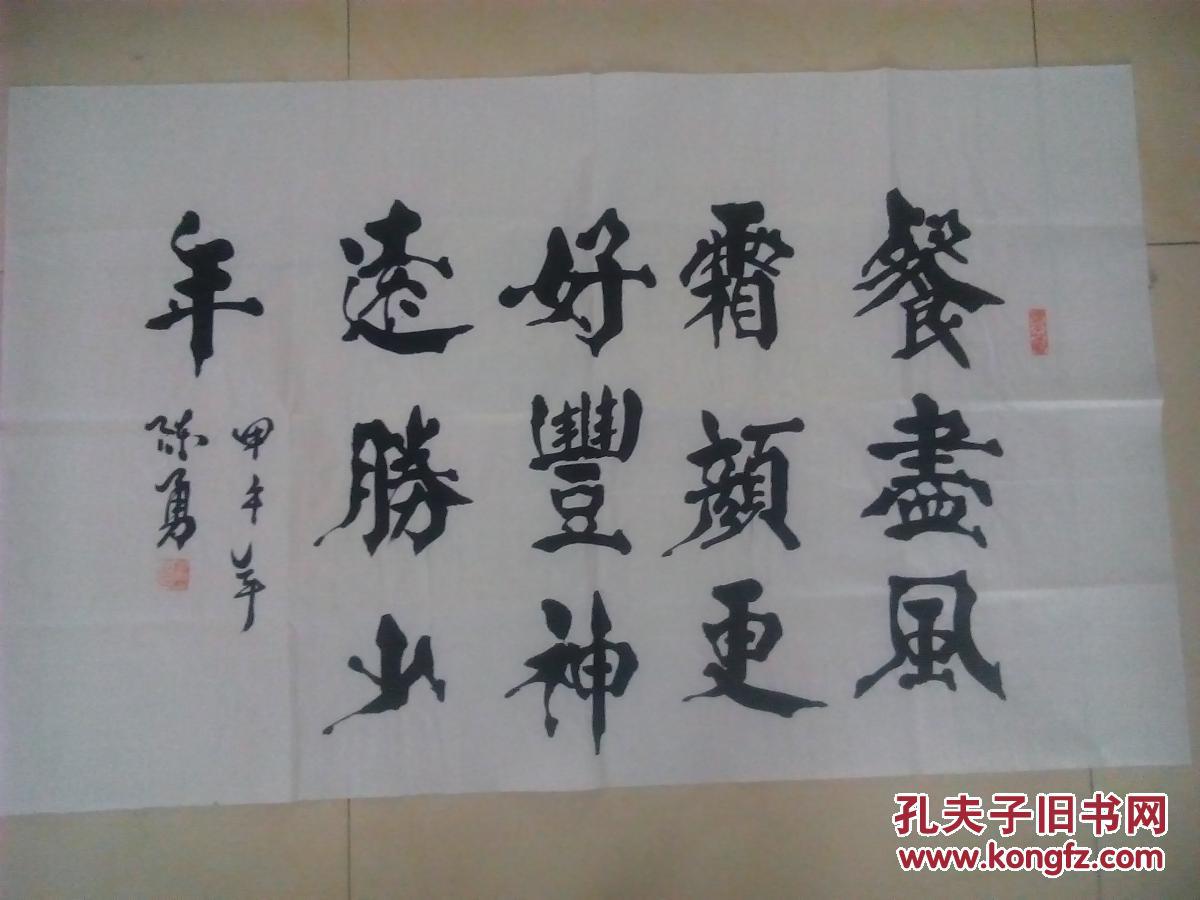 餐盡風
霜顏更
好豐神
遠勝少
年
甲午年
陈勇
孔夫子旧书网
www.kongfz.com